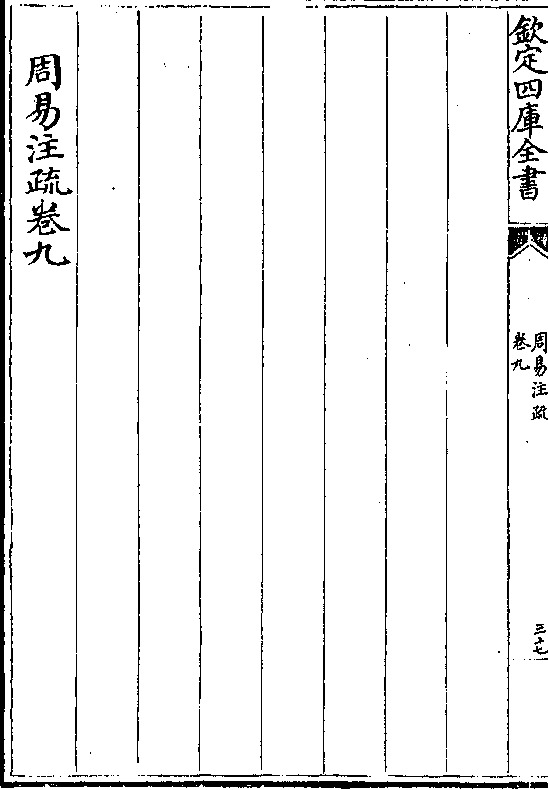 欽定四庫全書
周易注疏
卷九
三十七
周易注疏卷九